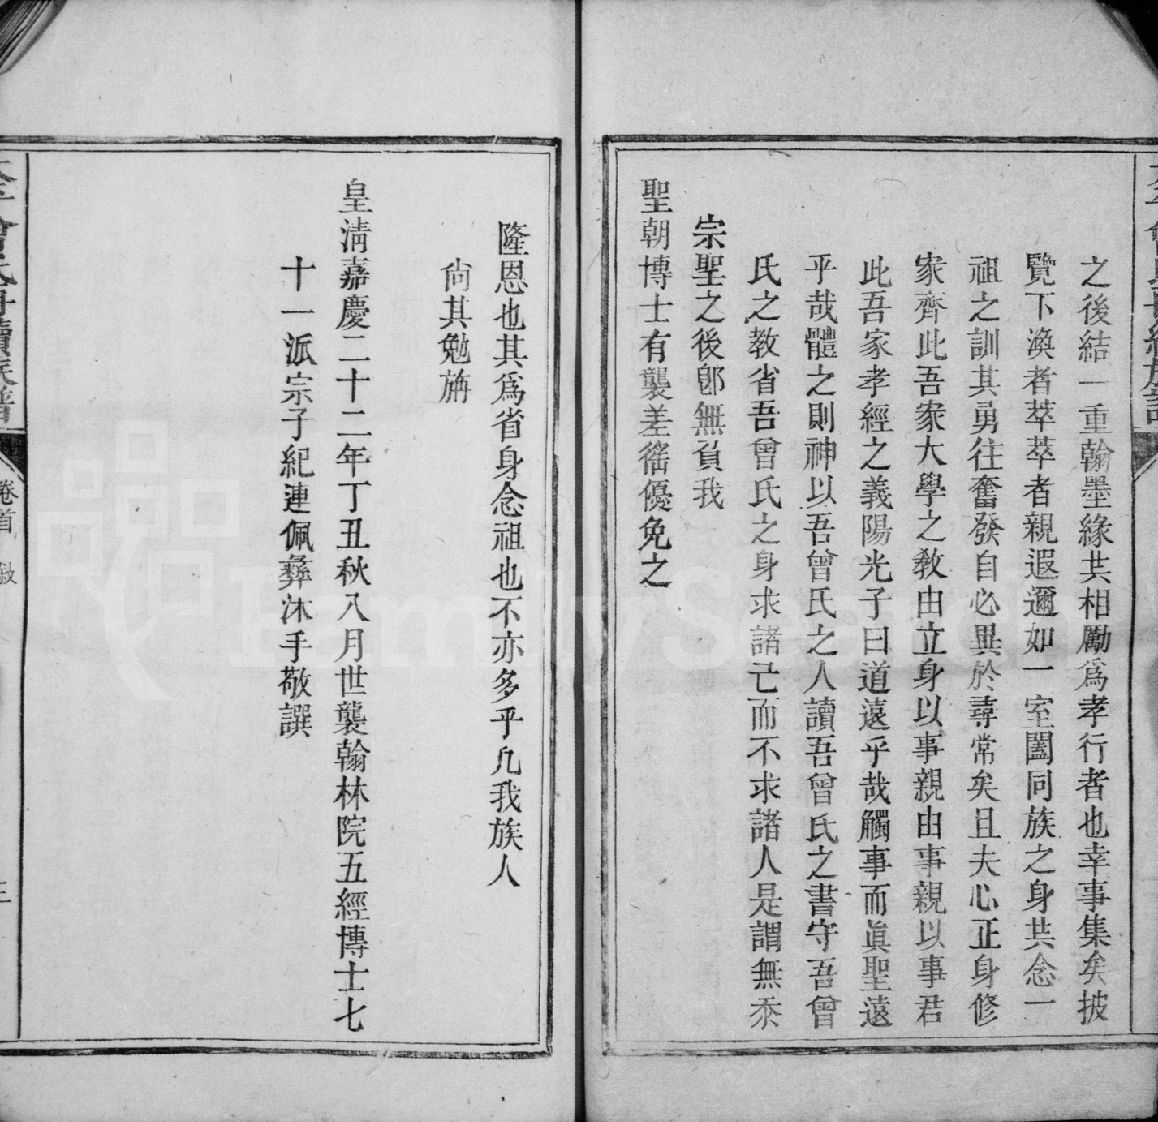 之後結一重翰墨緣共相勵爲孝行者也幸事集矣披
覽下渙者萃萃者親遐邇如一室闔同族之身共念一
祖之訓其勇往奮發自必異於尋常矣且夫心正身修
家齊此吾家大學之敎由立身以事親由事親以事君
此吾家孝經之義陽光子曰道遠乎哉觸事而眞聖遠
乎哉體之則神以吾曾氏之人讀吾曾氏之書守吾曾
氏之教省吾曾氏之身求諸己而不求諸人是謂無忝
宗聖之後卽無負我
聖朝博士有襲差徭優免之
隆恩也其爲省身念祖也不亦多乎凡我族人
尙其勉旃
皇淸嘉慶二十二年丁丑秋八月世襲翰林院五經博士七
十一派宗子紀連佩彝沐手敬譔
卷首
敘
三
FamilySearch